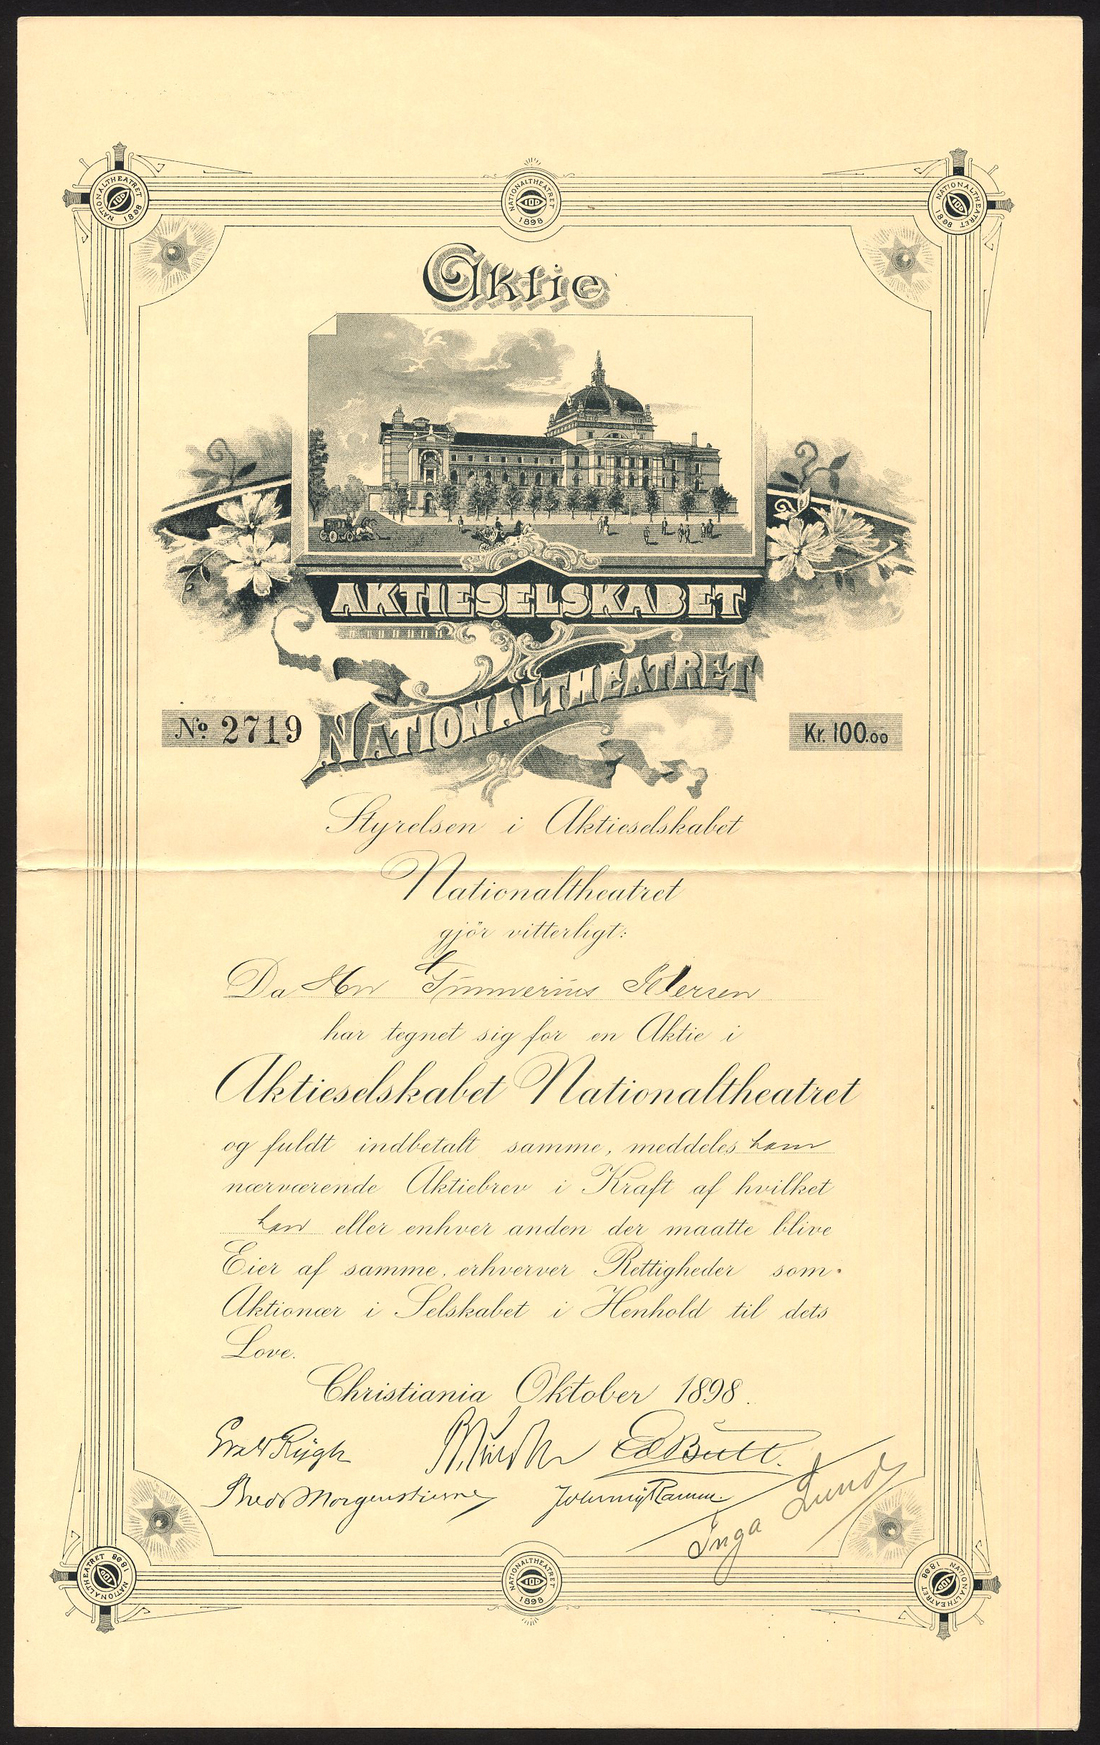 NATIONALTHEATRET 100 1898
NATIONALTHEATRET 100 1898
NATIONALTHEATRET 100 1898
Aktie
AKTIESELSKABET
NATIONALTHEATRET
No. 2719
Kr. 100.00
Styrelsen i Aktieselskabet
Nationaltheatret
gjör vitterligt:
Da Hr
har tegnet sig for en Aktie i
Aktieselskabet Nationaltheatret
og fuldt indbetalt samme, meddeles ham
nærværende Aktiebrev i Kraft af hvilket
han eller enhver anden der maatte blive
Eier af samme, erhverver Rettigheder som
Aktionær i Selskabet i Henhold til dets
Love.
Christiania Oktober 1898.
Rygh
Ed Butt.
Bredo Morgenstierne
Johnny Ramm
Inga Lund
NATIONALTHEATRET 100 1898
NATIONALTHEATRET 100 1898
NATIONALTHEATRET 100 1898